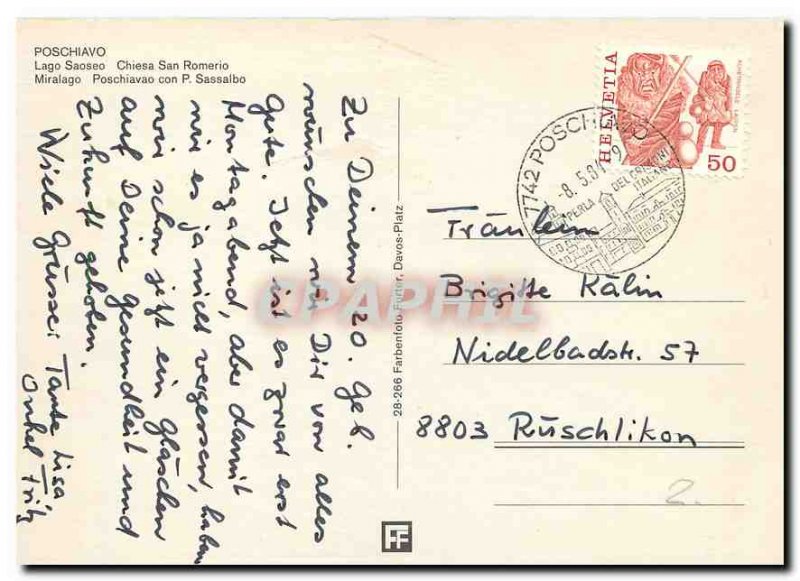 POSCHIAVO
Lago Saoseo Chiesa San Romerio
Miralago Poschiavao con P. Sassalbo
Zu Deinem 20. Geb.
wünschen wir Dir von alles
Gute. Jetzt ist es zwar erst
Montagabend, aber damit
wir es ja nicht vergessen, haben
wir schon jetzt ein Gläschen
auf Deine Gesundheit und
Zukunft gehoben.
Viele Grüsse: Tante Lisa
Onkel Fritz
28-266 Farbenfoto Furter, Davos-Platz
FF
HELVETIA
50
7742 POSCHIAVO
-8.5.8
PERLA DEL GRIGIONI
ITALIANO
Fräulein
Brigitte Kälin
Nidelbadstr. 57
8803 Rüschlikon
2.
CPAPHIL